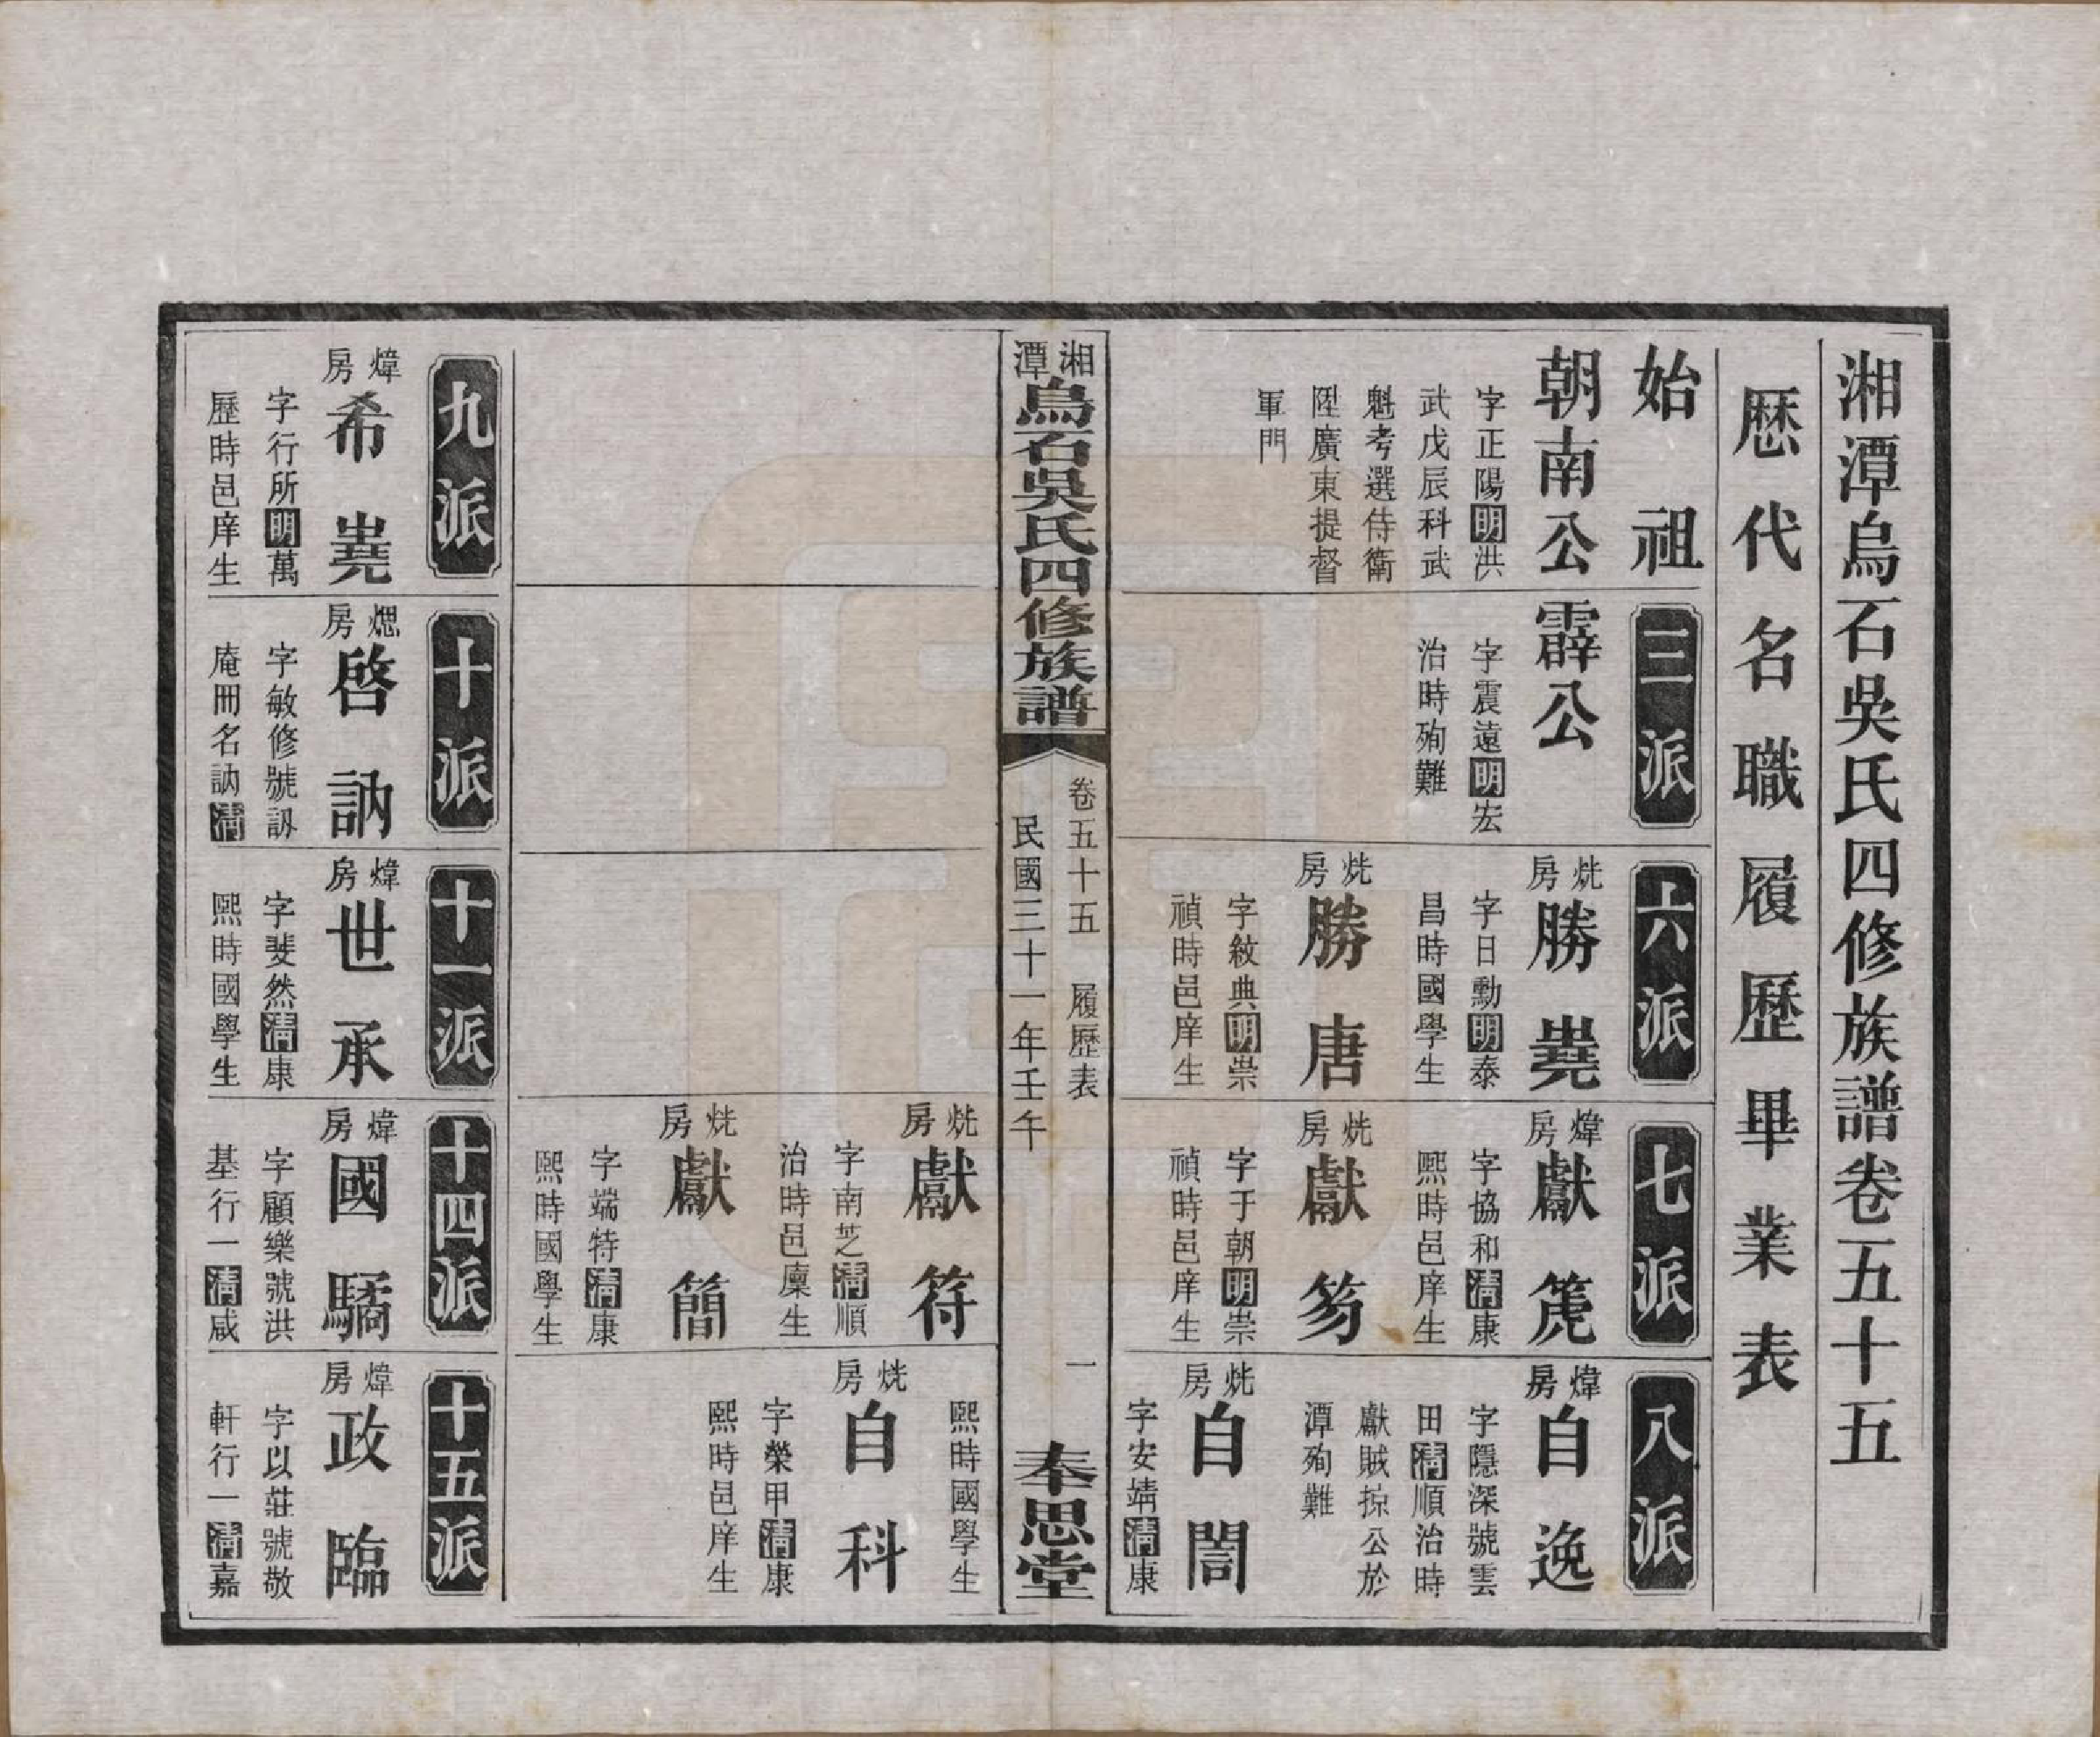 湘潭烏石吳氏四修族譜卷五十五
歷代名職履歷畢業表
始祖
朝南公
字正陽明洪
武戊辰科武
魁考選侍衛
陞廣東提督
軍門
三派
霹公
字震遠明宏
治時殉難
六派
烍房
勝嶤
字日勳明泰
昌時國學生
烍房
勝唐
字紋典明崇
禎時邑庠生
七派
煒房
獻箎
字協和清康
熙時邑庠生
烍房
獻笏
字于朝明崇
禎時邑庠生
八派
煒房
自逸
字隱深號雲
田清順治時
獻賊掠公於
潭殉難
烍房
自誾
字安靖清康
湘潭烏石吳氏四修族譜
卷五十五 履歷表 一
民國三十一年壬午
奉思堂
烍房
獻符
字南芝清順
治時邑廩生
烍房
獻簡
字端特清康
熙時國學生
熙時國學生
烍房
自科
字榮甲清康
熙時邑庠生
九派
煒房
希嶤
字行所明萬
歷時邑庠生
十派
煾房
啓訥
字敏修號訒
庵冊名訥清
十一派
煒房
世承
字斐然清康
熙時國學生
十四派
煒房
國驕
字顧樂號洪
基行一清咸
十五派
煒房
政臨
字以莊號敬
軒行一清嘉